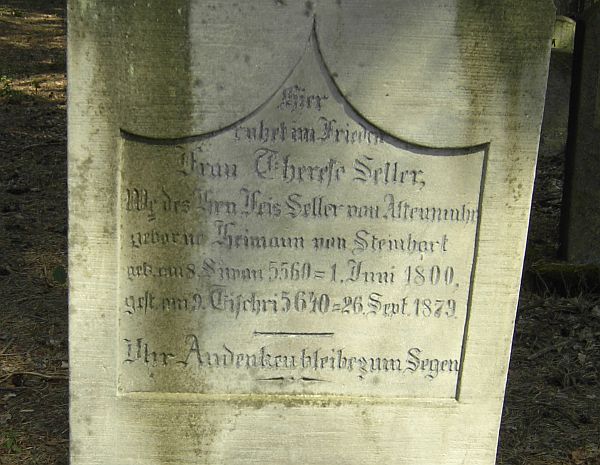 Hier
ruhet im Frieden
Frau Therese Seller,
We des Hrn Feis Seller von Altenmuhr
geborne Heimann von Steinhart
geb. am 8. Siwan 5560 = 1. Juni 1800,
gest. am 9. Tischri 5640 = 26. Sept. 1879.
Ihr Andenken bleibe zum Segen